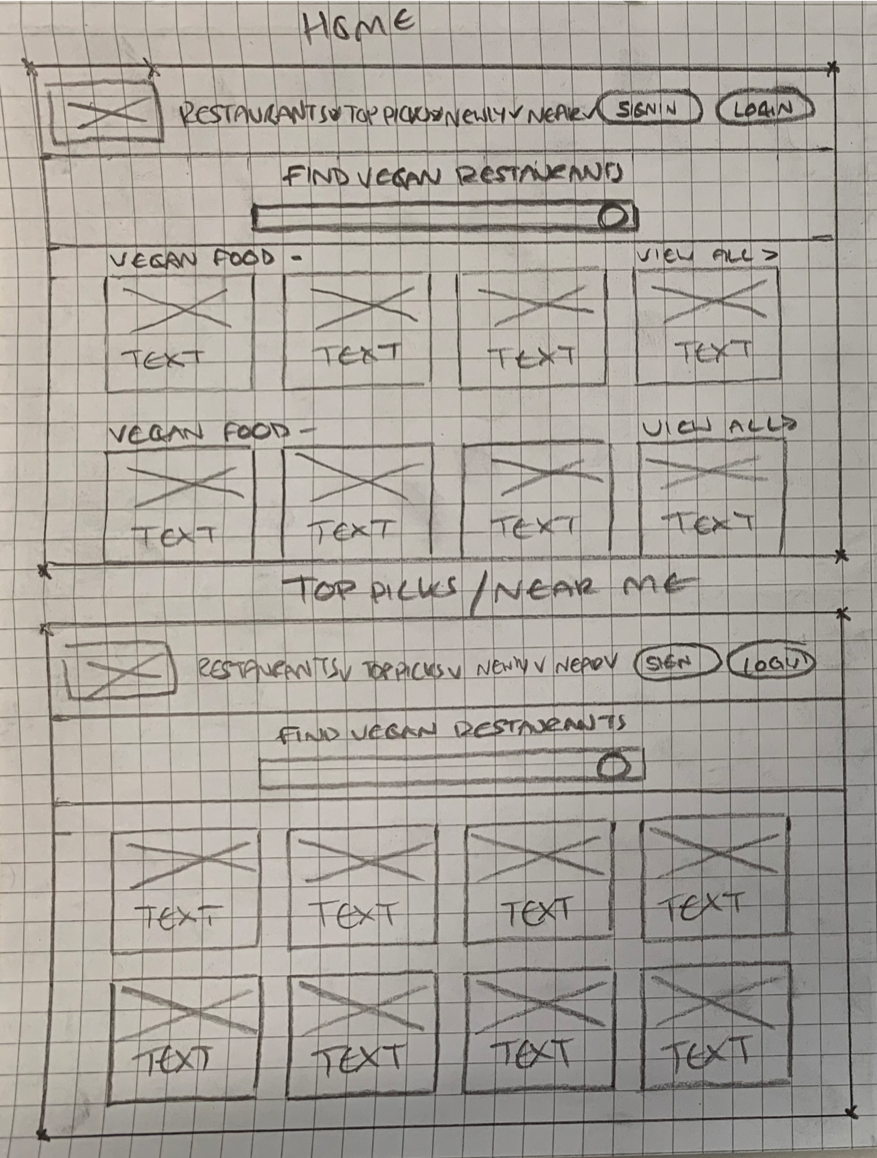 HOME
RESTAURANTS v TOP PICKS v NEWLY v NEAR v SIGNIN LOGIN
FIND VEGAN RESTAURANTS
VEGAN FOOD - VIEW ALL >
TEXT TEXT TEXT TEXT
VEGAN FOOD - VIEW ALL >
TEXT TEXT TEXT TEXT
TOP PICKS / NEAR ME
RESTAURANTS v TOP PICKS v NEWLY v SIGN
FIND VEGAN RESTAURANTS
TEXT TEXT TEXT TEXT
TEXT TEXT TEXT TEXT